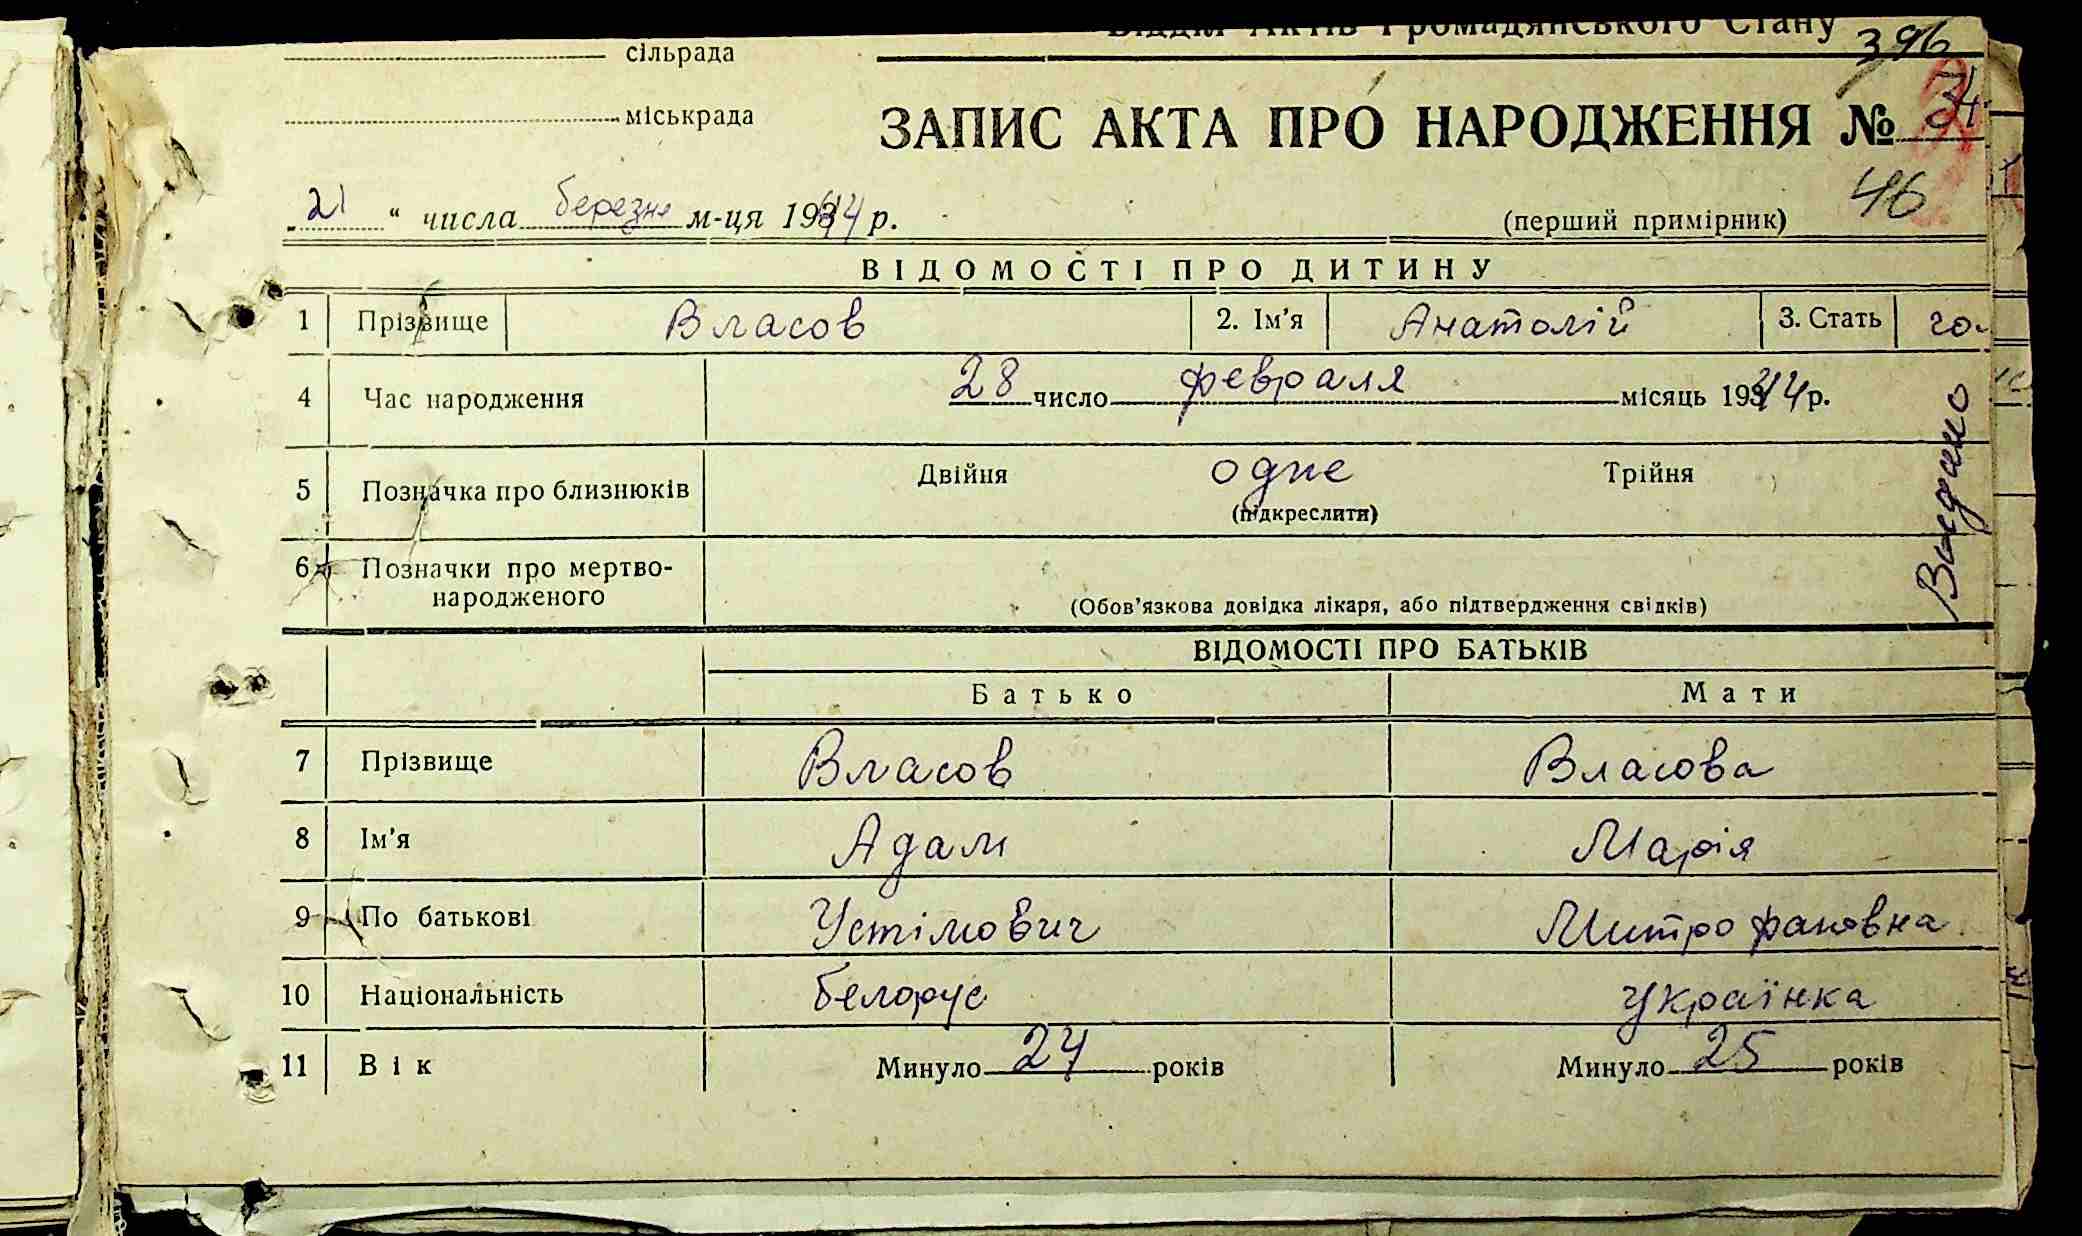 Відділ Актів Громадянського Стану
396
сільрада
міськрада
ЗАПИС АКТА ПРО НАРОДЖЕННЯ № 34
46
„ 21 “ числа березня м-ця 1944 р.
(перший примірник)
ВІДОМОСТІ ПРО ДИТИНУ
1 Прізвище Власов 2. Ім’я Анатолій 3. Стать чо.
4 Час народження 28 число февраля місяць 1944 р.
Видано
5 Позначка про близнюків Двійня одне Трійня
(підкреслити)
6 Позначки про мертво-
народженого
(Обов’язкова довідка лікаря, або підтвердження свідків)
ВІДОМОСТІ ПРО БАТЬКІВ
Батько Мати
7 Прізвище Власов Власова
8 Ім’я Адам Марія
9 По батькові Устімович Митрофановна
10 Національність белорус українка
11 Вік Минуло 24 років Минуло 25 років